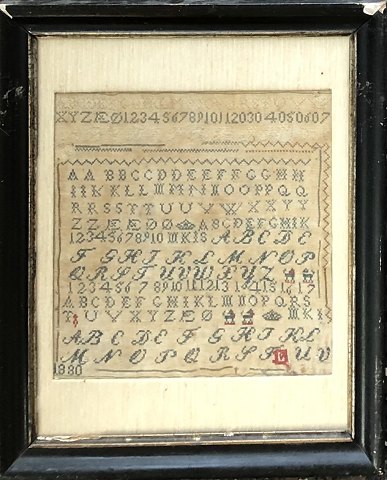 XYZÆØ123456789101120304050607
AABBCCDDEEFFGGHH
IIKKLLMMNNOOPPQQ
RRSSTTUUVVXXYY
ZZÆÆØØABCDEFGHIK
12345678910 MKIS ABCDE
FGHIKLMNOP
QRSTUVWXYZ
1234567891011121314151617
ABCDEFGHIKLMNOPQRS
TUVXYZÆØ MKI
ABCDEFGHIKL
MNOPQRST L UV
1880